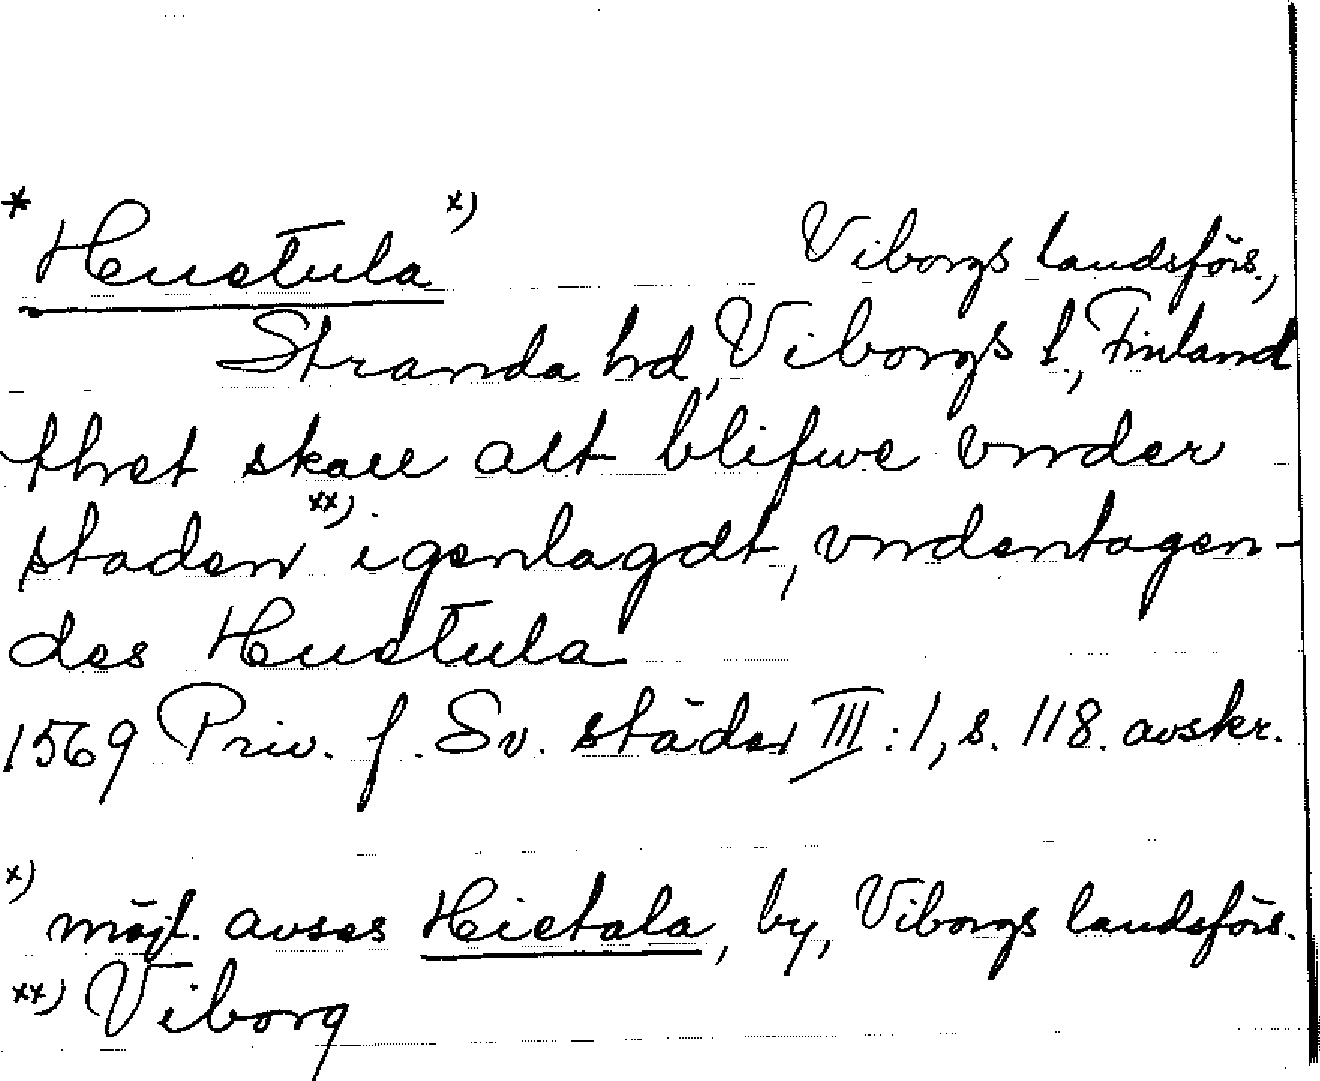 * Huetula x) Viborgs landsförs.,
Stranda hd, Viborgs l., Finland
thet skall alt blifwe vnder
staden xx) igenlagdt, vndentagen-
des Huetula
1569 Priv. f. Sv. städer III:1, s. 118. avskr.
x) möjl. avses Hietala, by, Viborgs landsförs.
xx) Viborg